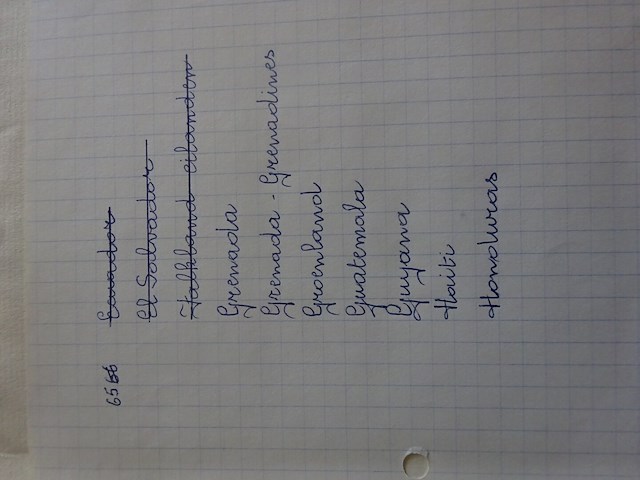 6566 Ecuador
El Salvador
Falkland eilanden
Grenada
Grenada - Grenadines
Groenland
Guatemala
Guyana
Haiti
Honduras